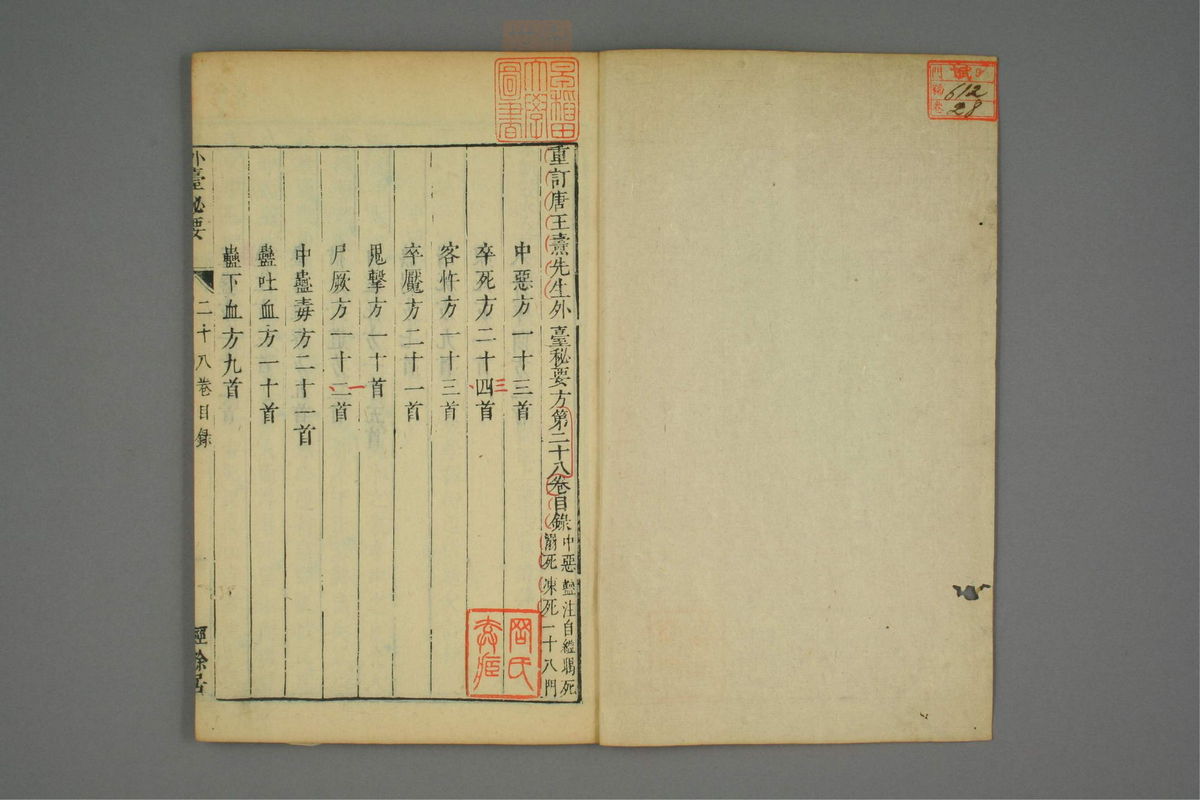 門 号 卷
612
28
早稲田大學圖書
重訂唐王燾先生外臺秘要方第二十八卷目錄
中惡蠱注自縊暍死
凍死一十八門
中惡方一十三首
卒死方二十四首
三
客忤方一十三首
卒魘方二十一首
鬼擊方一十首
尸厥方一十二首
一
中蠱毒方二十一首
蠱吐血方一十首
蠱下血方九首
外臺秘要
二十八卷目録
經餘居